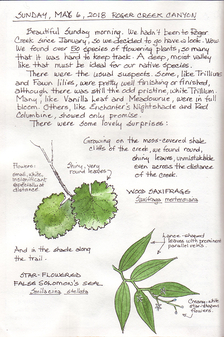 SUNDAY, MAY 6, 2018 ROGER CREEK CANYON
Beautiful Sunday morning. We hadn't been to Roger
Creek since January, so we decided to go have a look. Wow!
We found over 50 species of flowering plants, so many
that it was hard to keep track. A deep, moist valley
like that must be ideal for our native species!
There were the usual suspects. Some, like Trilliums
and Fawn lilies, were pretty well finishing or finished,
although there was still the odd pristine, white Trillium.
Many, like Vanilla Leaf and Meadowrue, were in full
bloom. Others, like Enchanter's Nightshade and Red
Columbine, showed only promise.
There were some lovely surprises:
Growing on the moss-covered shale
cliffs of the creek, we found round,
shiny leaves, unmistakable
even across the distance
of the creek.
Flowers:
small, white,
insignificant
especially at
distance.
Shiny, very
round leaves
WOOD SAXIFRAGE
Saxifraga mertensiana
And in the shade along
the trail.
STAR-FLOWERED
FALSE SOLOMON'S SEAL
Smilacina stellata
Lance-shaped
leaves with prominent
parallel veins.
Creamy-white
star-shaped
flowers.